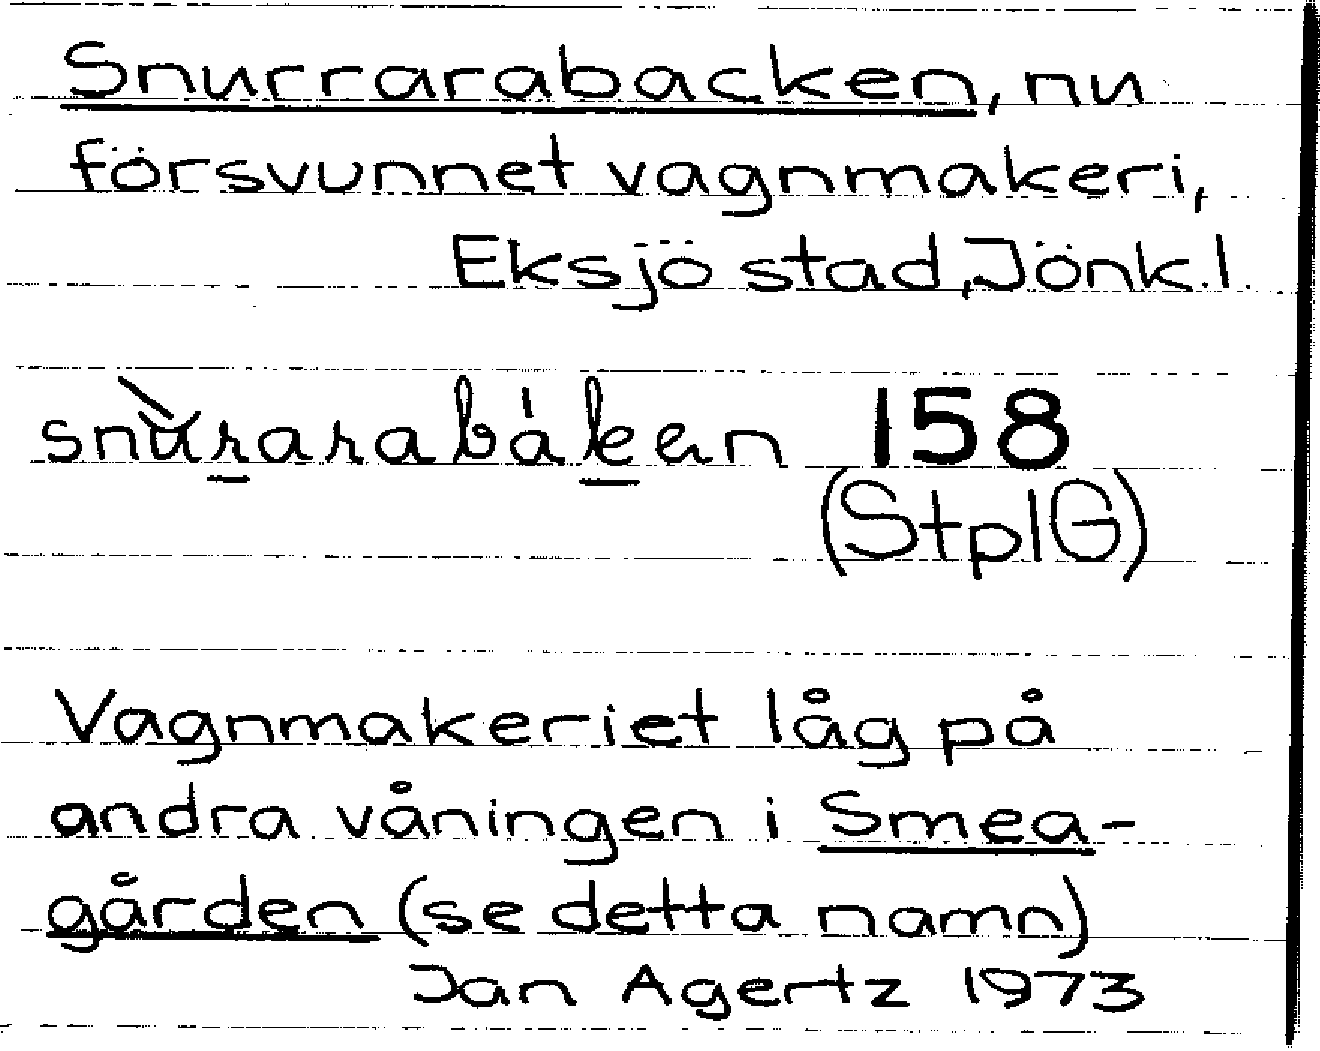 Snurrarabacken, nu
försvunnet vagnmakeri,
Eksjö stad, Jönk.l.
snùrarabákan 158
(StplG)
Vagnmakeriet låg på
andra våningen i Smea-
gården (se detta namn)
Jan Agertz 1973